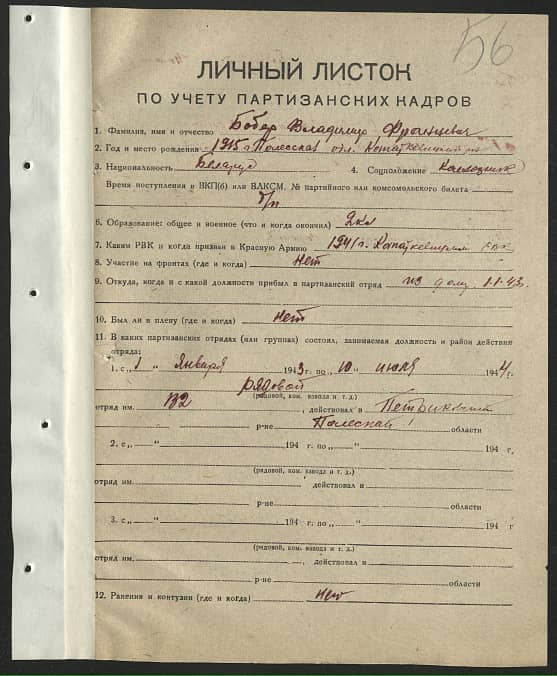 56
ЛИЧНЫЙ ЛИСТОК
ПО УЧЕТУ ПАРТИЗАНСКИХ КАДРОВ
1. Фамилия, имя и отчество Бобер Владимир
2. Год и место рождения 1915 г Полесская обл.
3. Национальность Беларус 4. Соцположение Колхозник
Время поступления в ВКП(б) или ВЛКСМ. № партийного или комсомольского билета
б/п
6. Образование: общее и военное (что и когда окончил) 2 кл
7. Каким РВК и когда призван в Красную Армию 1941 г. РВК
8. Участие на фронтах (где и когда) Нет
9. Откуда, когда и с какой должности прибыл в партизанский отряд из дому 1.1.43
10. Был ли в плену (где и когда) нет
11. В каких партизанских отрядах (или группах) состоял, занимаемая должность и район действия
отряда:
1. с „1„ Января 1943 г. по „10„ июля 1944 г.
рядовой
(рядовой, ком. взвода и т. д.)
отряд им. 132, действовал в Петриковский
р-не Полеской области
2. с „ „ 194 г. по „ „ 194 г,
(рядовой, ком. взвода и т. д.)
отряд им. , действовал в
р-не области
3. с „ „ 194 г. по „ „ 194 г
(рядовой, ком. взвода и т. д.)
отряд им. , действовал в
р-не области
12. Ранения и контузии (где и когда) нет